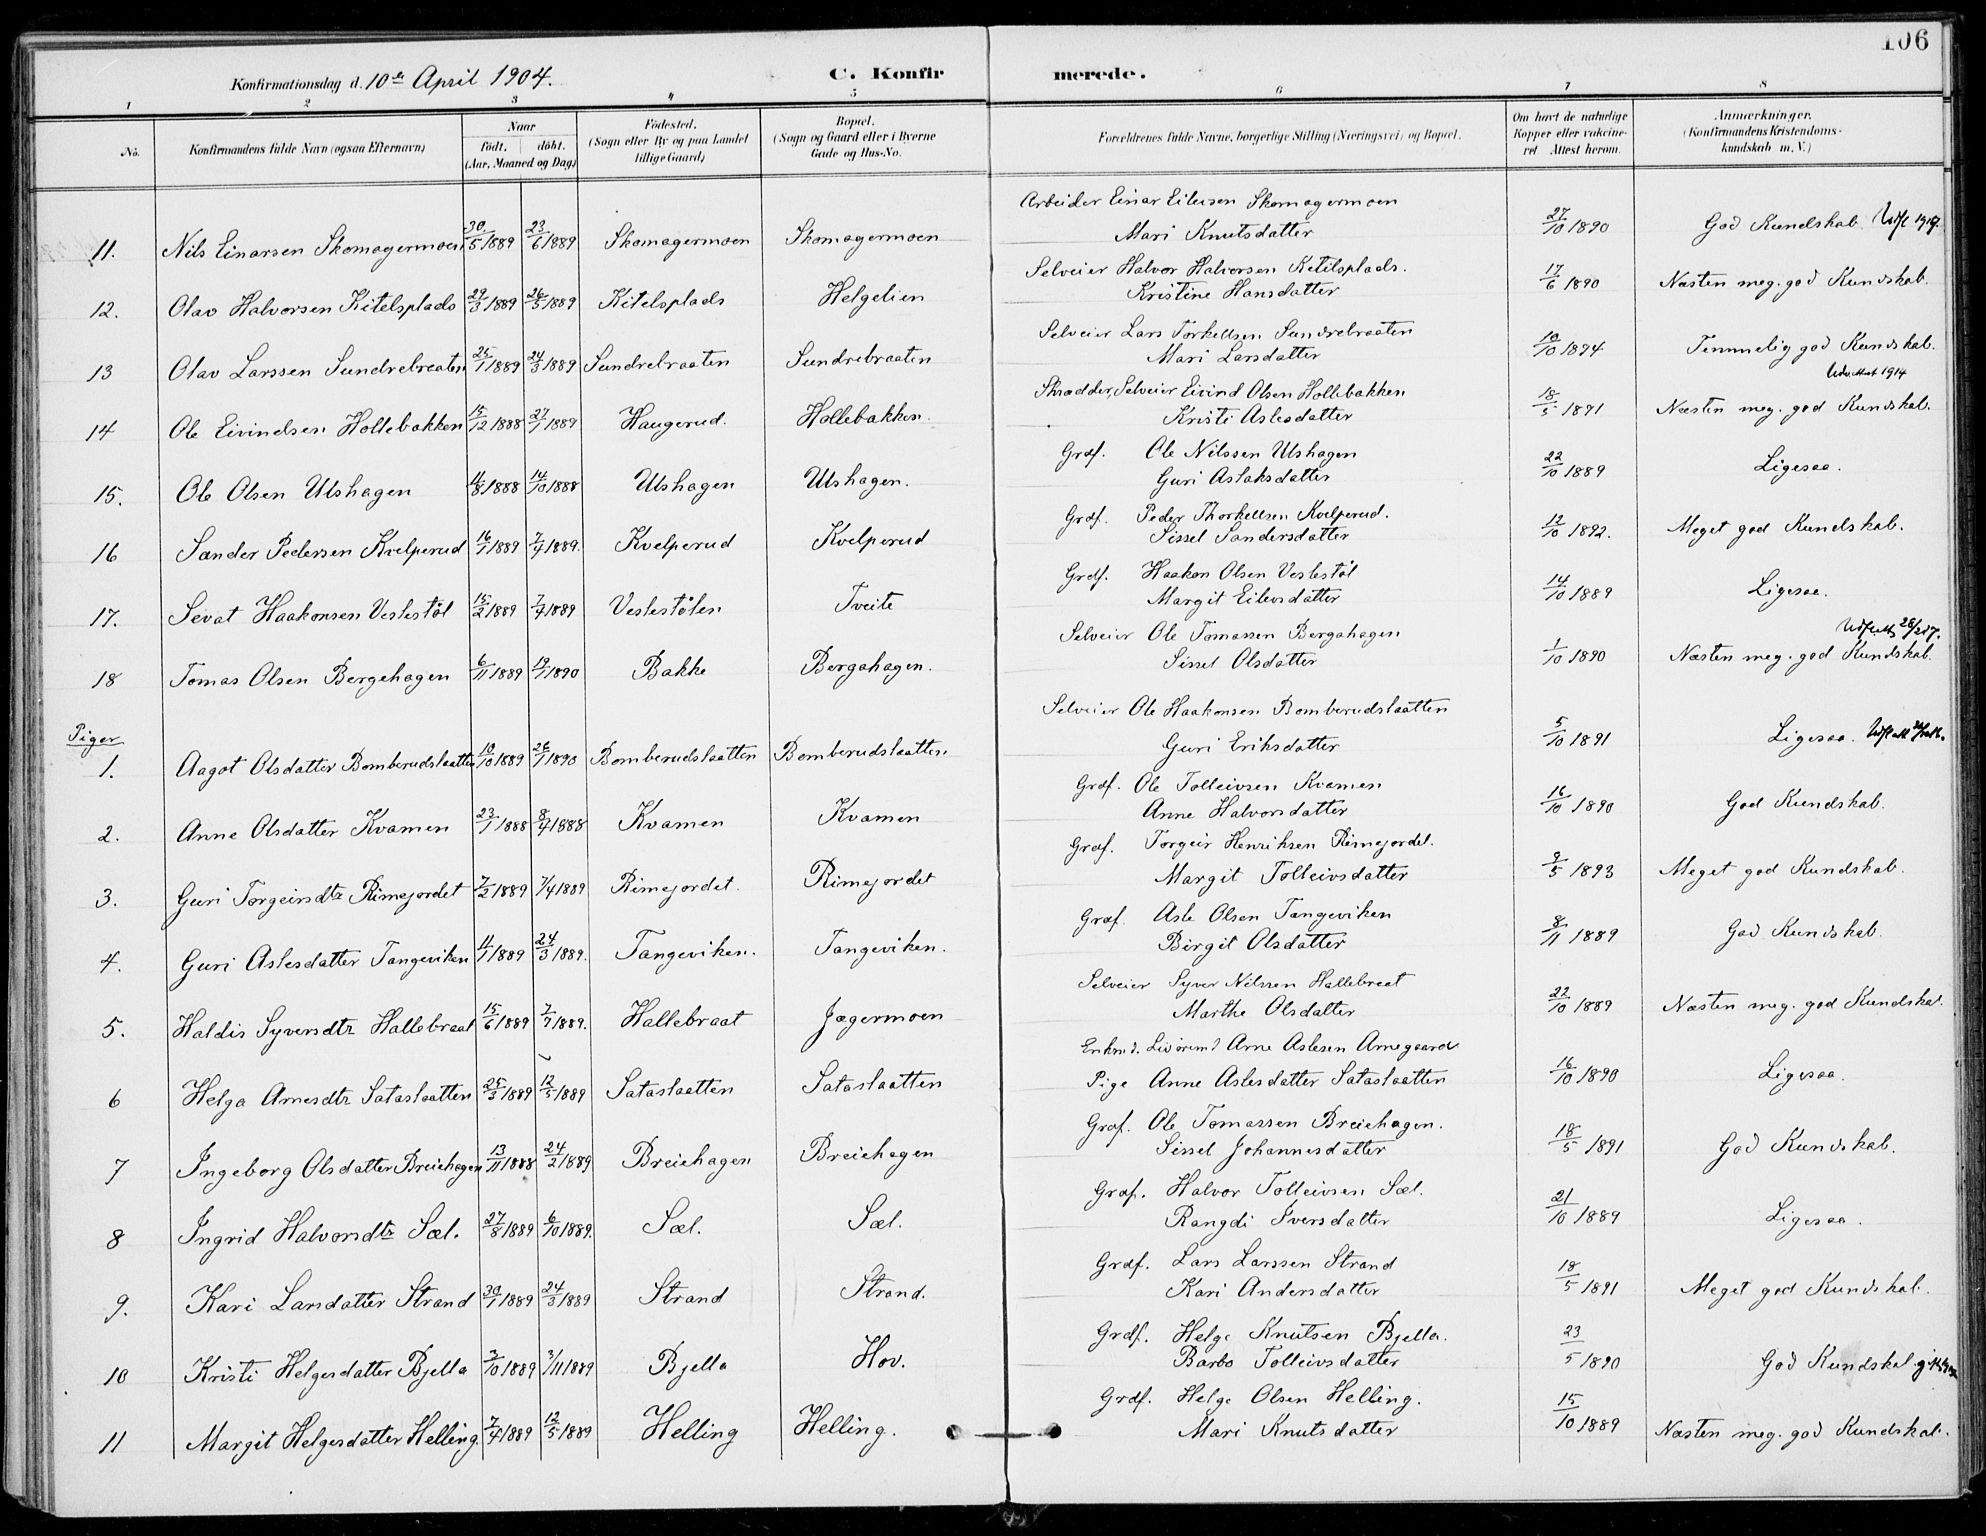 106
Konfirmationsdag d. 10de April 1904. C. Konfirmerede.
1 2 3 4 5 6 7 8
No. Konfirmandens fulde Navn (ogsaa Efternavn) Naar født. døbt. (Aar, Maaned og Dag) Fødested. (Sogn eller By og paa Landet tillige Gaard) Bopæl. (Sogn og Gaard eller i Byerne Gade og Hus-No. Forældrenes fulde Navne, borgerlige Stilling (Næringsvei) og Bopæl. Om havt de naturlige Kopper eller vaccineret Attest herom. Anmærkninger. (Konfirmandens Kristendomskundskab m. V.)
11. Nils Einarsen Skomagermoen 30/5 1889 23/6 1889 Skomagermoen Skomagermoen Arbeider Einar Eilevsen Skomagermoen
Mari Knutsdatter 27/10 1890 God Kundskab.
12. Olav Halvorsen Kitelsplads 29/3 1889 26/5 1889 Kitelsplads Helgelien Selveier Halvor Halvorsen Kitelsplads.
Kristine Hansdatter 17/6 1890 Næsten meg. god Kundskab.
13 Olav Larssen Sundrebraaten 25/1 1889 24/3 1889 Sundrebraaten Sundrebraaten Selveier Lars Torkellsen Sundrebraaten
Mari Larsdatter 10/10 1894 Temmelig god Kundskab.
14 Ole Eivindsen Hollebakken 15/12 1888 27/1 1889 Haugerud. Hollebakken. Skrædder, Selveier Eivind Olsen Hollebakken
Kristi Aslesdatter 18/5 1891 Næsten meg. god Kundskab. 1914
15. Ole Olsen Ulshagen 4/8 1888 14/10 1888 Ulshagen Ulshagen. Grdf. Ole Nilssen Ulshagen
Guri Aslaksdatter 22/10 1889 Ligesaa.
16 Sander Pedersen Kvelperud 16/1 1889 7/4 1889. Kvelperud Kvelperud Grdf. Peder Thorkellsen Kvelperud.
Sissel Sandersdatter 12/10 1892. Meget god Kundskab.
17. Sevat Haakonsen Vestestøl 15/2 1889 7/4 1889 Vestestølen Tveite Grdf. Haakon Olsen Vestestøl
Margit Eilevsdatter 14/10 1889 Ligesaa.
18 Tomas Olsen Bergehagen 6/11 1889 19/1 1890 Bakke Bergahagen. Selveier Ole Tomassen Bergahagen
Sissel Olsdatter 1/10 1890 Næsten meg. god Kundskab.
Piger
1. Aagot Olsdatter Bomberudslaatten 10/10 1889 26/1 1890 Bomberudslaatten Bomberudslaatten Selveier Ole Haakonsen Bomberudslaatten
Guri Eriksdatter 5/10 1891 Ligesaa.
2. Anne Olsdatter Kvamen 23/1 1888 8/4 1888 Kvamen Kvamen Grdf. Ole Tolleivsen Kvamen
Anne Halvorsdatter 16/10 1890 God Kundskab.
3. Guri Torgeirsdtr Rimejordet 7/2 1889 7/4 1889 Rimejordet. Rimejordet Grdf. Torgeir Henriksen Rimejordet.
Margit Tolleivsdatter 9/5 1893 Meget god Kundskab.
4. Guri Aslesdatter Tangeviken 4/1 1889 24/3 1889. Tangeviken. Tangeviken. Grdf. Asle Olsen Tangeviken
Birgit Olsdatter 8/11 1889 God Kundskab.
5. Haldis Syversdtr Hallebraat 15/6 1889 7/7 1889. Hallebraat Jægermoen Selveier Syver Nilssen Hallebraat
Marthe Olsdatter 22/10 1889 Næsten meg. god Kundskab.
6 Helga Arnesdtr Sataslaatten 25/3 1889 12/5 1889 Sataslaatten Sataslaatten Enkmd. Livøremd Arne Aslesen Arnegaard
Pige Anne Aslesdatter Sataslaatten 16/10 1890 Ligesaa.
7 Ingeborg Olsdatter Breiehagen 13/11 1888 24/2 1889 Breiehagen Breiehagen Grdf. Ole Tomassen Breiehagen.
Sissel Johannesdatter 18/5 1891 God Kundskab.
8 Ingrid Halvorsdtr Sæl. 27/8 1889 6/10 1889. Sæl. Sæl. Grdf. Halvor Tolleivsen Sæl.
Rangdi Iversdatter 21/10 1889 Ligesaa.
9. Kari Larsdatter Strand 30/1 1889 24/3 1889 Strand Strand. Grdf. Lars Larssen Strand
Kari Andersdatter 18/5 1891 Meget god Kundskab.
10 Kristi Helgesdatter Bjella 3/10 1889 3/11 1889 Bjella Hov. Grdf. Helge Knutsen Bjella.
Barbo Tolleivsdatter 23/5 1890 God Kundskab
11 Margit Helgesdatter Helling. 7/4 1889 12/5 1889 Helling Helling. Grdf. Helge Olsen Helling.
Mari Knutsdatter 15/10 1889 Næsten meg. god Kundskab.